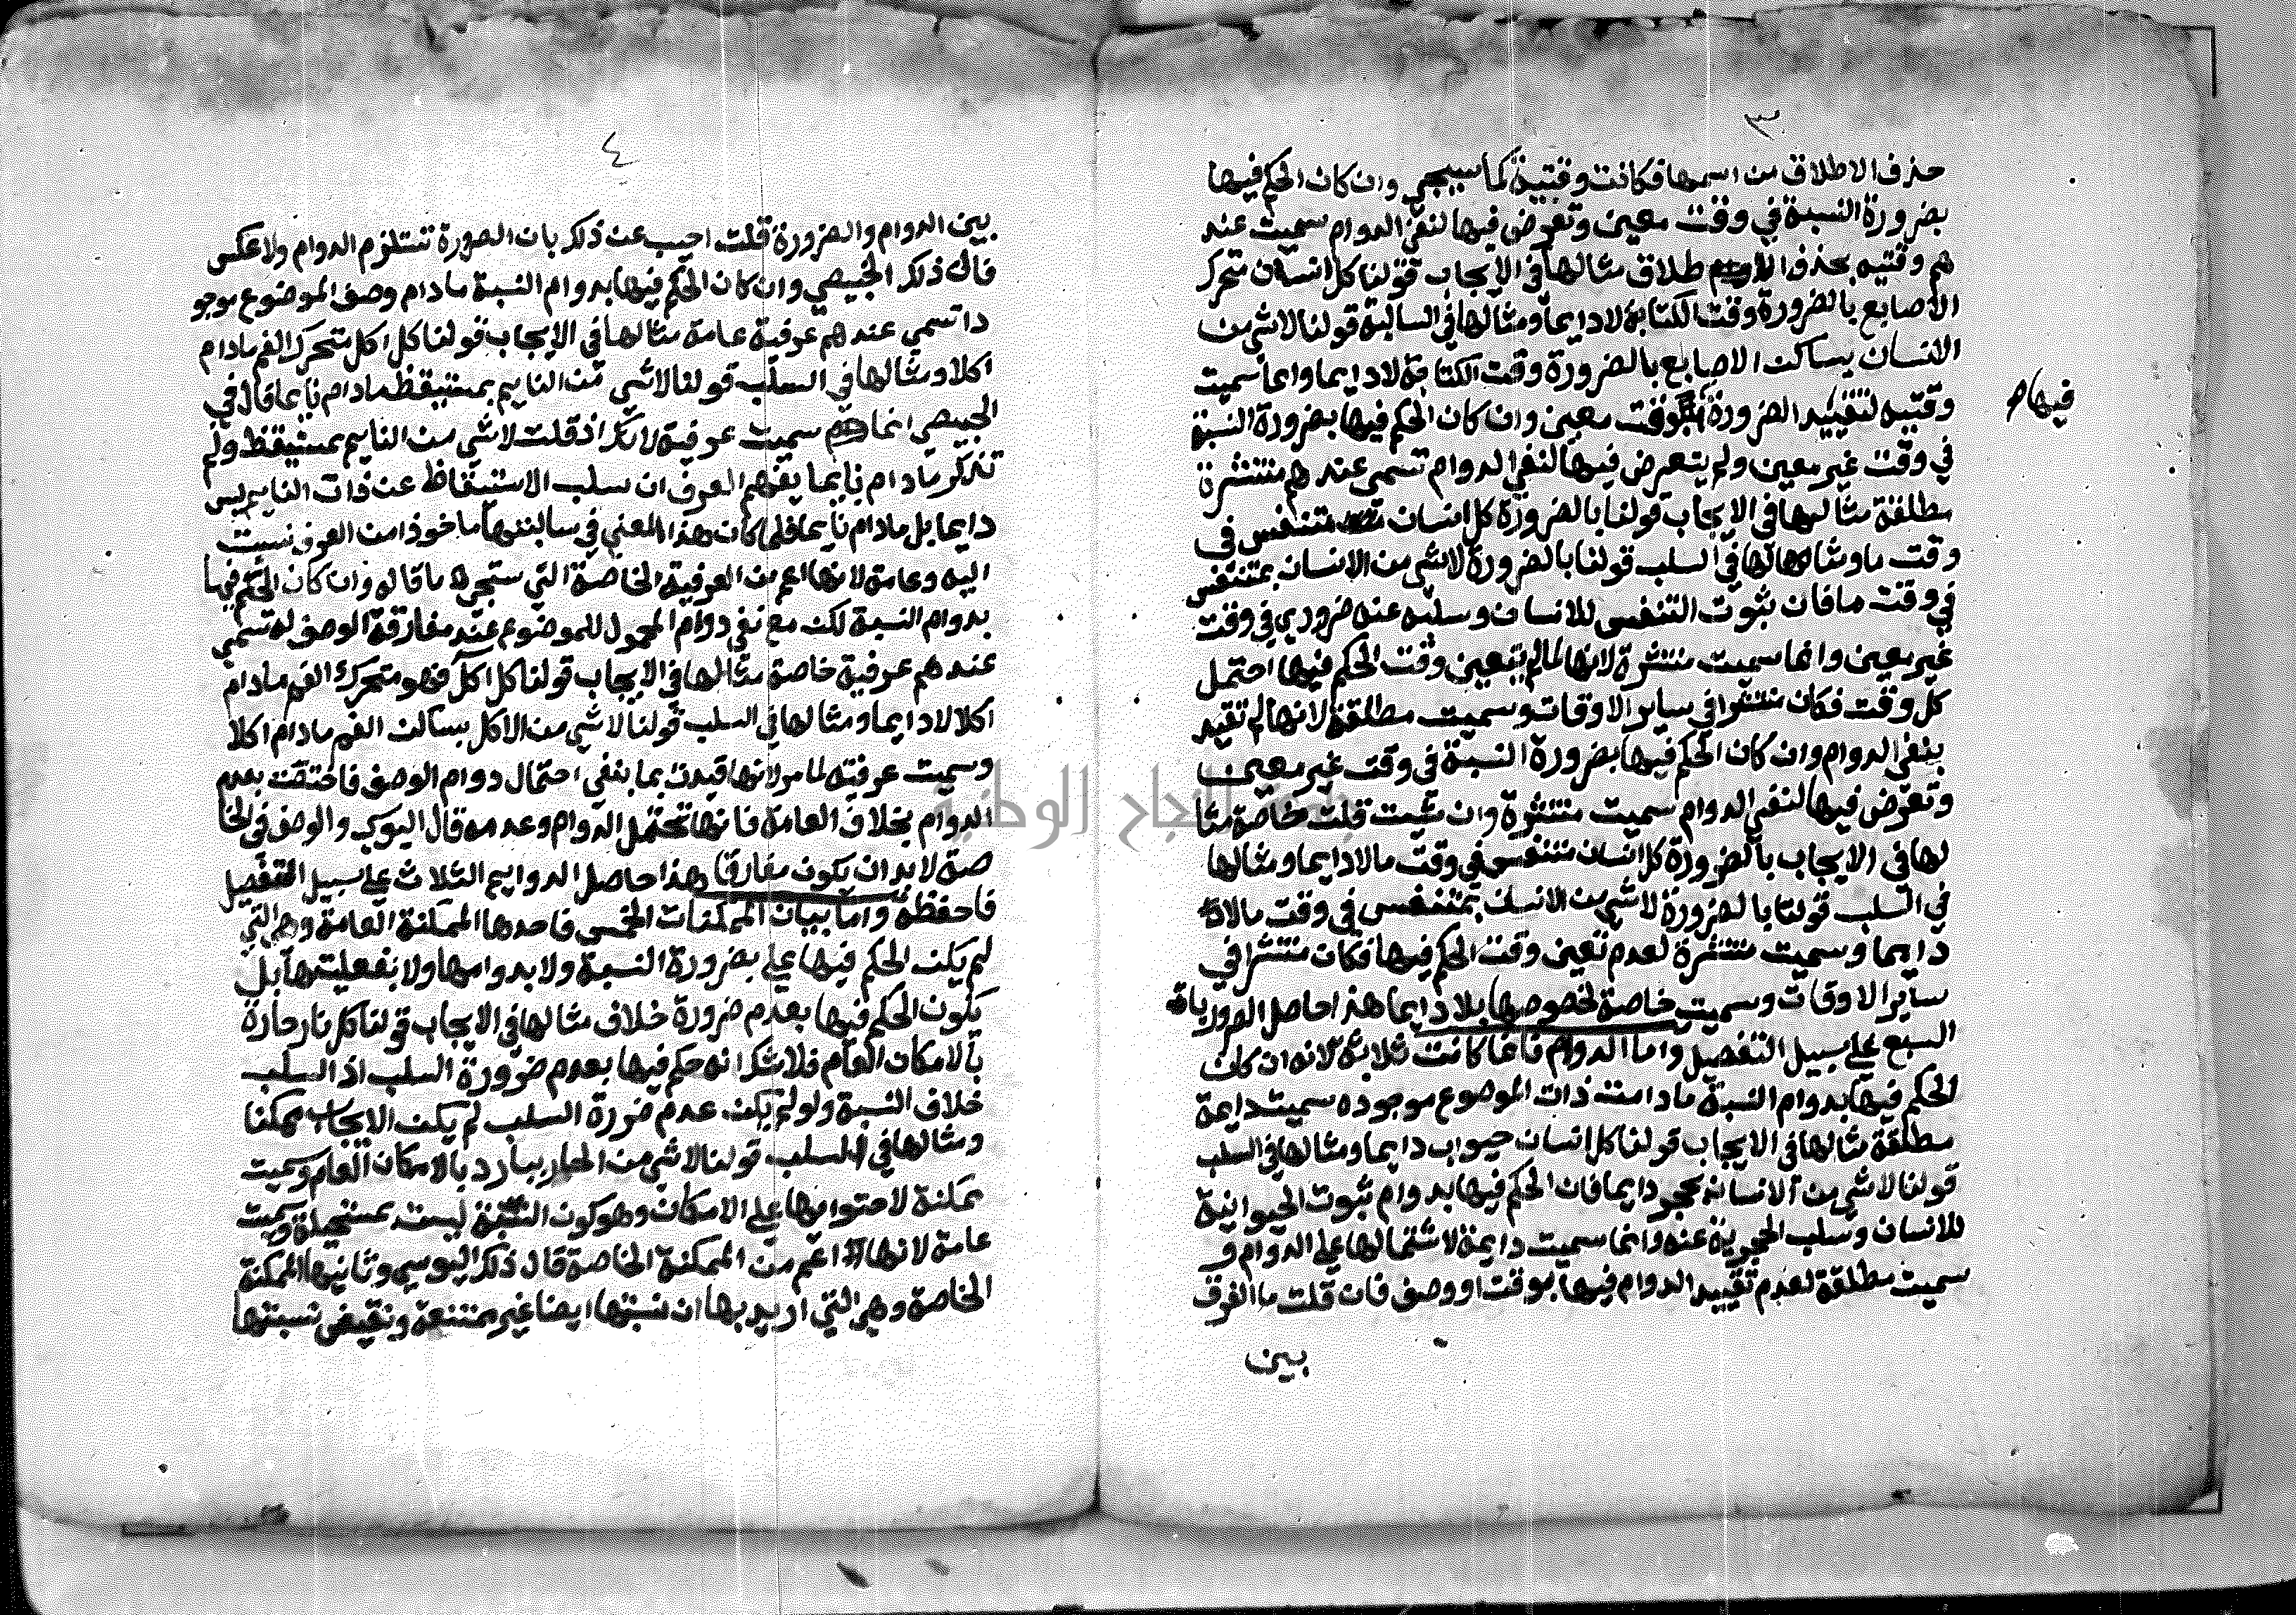 ٣
حذف الاطلاق من اسمها فكانت وقتية كما سيجي وان كان الحكم فيها
بضرورة النسبة في وقت معين وتعرض فيها لنفي الدوام سميت عند
هم وقتيه بحذف الاطلاق مثالها في الايجاب قولنا كل انسان متحرك
الاصابع بالضرورة وقت الكتابة لا دايما ومثالها في السالبة قولنا لا شي من
الانسان بساكن الاصابع بالضرورة وقت الكتابة لا دايما وانما سميت
وقتيه لتقييد الضرورة فيها بوقت معين وان كان الحكم فيها بضرورة النسبة
في وقت غير معين ولم يتعرض فيها لنفي الدوام تسمى عندهم منتشرة
مطلقة مثالها في الايجاب قولنا بالضرورة كل انسان متنفس في
وقت ما ومثالها في السلب قولنا بالضرورة لا شي من الانسان بمتنفس
في وقت ما فان ثبوت التنفس للانسان وسلبه عنه ضروري في وقت
غير معين وانما سميت منتشرة لانها لما لم يتعين وقت الحكم فيها احتمل
كل وقت فكان منتشرا في ساير الاوقات وسميت مطلقة لانها لم تقيد
بنفي الدوام وان كان الحكم فيها بضرورة النسبة في وقت غير معين
وتعرض فيها لنفي الدوام سميت منتشرة وان شيت قلت خاصة مثا
لها في الايجاب بالضرورة كل انسان متنفس في وقت ما لا دايما ومثالها
في السلب قولنا بالضرورة لا شي من الانسان بمتنفس في وقت ما لا
دايما وسميت منتشرة لعدم تعين وقت الحكم فيها فكان منتشرا في
ساير الاوقات وسميت خاصة لخصوصها بلا دايما هذا حاصل الضروريات
السبع على سبيل التفصيل واما الدوام فانما كانت ثلاثة لانه ان كان
الحكم فيها بدوام النسبة ما دامت ذات الموضوع موجوده سميت دايمة
مطلقة مثالها في الايجاب قولنا كل انسان حيوان دايما ومثالها في السلب
قولنا لا شي من الانسان بحجر دايما فان الحكم فيها بدوام ثبوت الحيوانية
للانسان وسلب الحجرية عنه وانما سميت دايمة لاشتمالها على الدوام و
سميت مطلقة لعدم تقييد الدوام فيها بوقت او وصف فان قلت ما الفرق
بين
فيها ص
٤
بين الدوام والضرورة قلت اجيب عن ذلك بان الضرورة تستلزم الدوام ولا عكس
قال ذلك الخبيصي وان كان الحكم فيها بدوام النسبة ما دام وصف الموضوع موجو
دا تسمي عندهم عرفية عامة مثالها في الايجاب قولنا كل اكل متحرك الفم ما دام
اكلا ومثالها في السلب قولنا لا شي من النايم بمستيقظ ما دام نايما قال في
الخبيصي انما سميت عرفية لانك اذ قلت لا شي من النايم بمستيقظ ولم
تذكر ما دام نايما يفهم العرف ان سلب الاستيقاظ عن ذات النايم ليس
دايما بل ما دام نايما فلما كان هذا المعني في سالبتها ماخوذا من العرف نسبت
اليه وعامة لانها اعم من العرفية الخاصة التي ستجي ه ما قاله وان كان الحكم فيها
بدوام النسبة لكن مع نفي دوام المحمول للموضوع عند مفارقة الوصف له تسمي
عندهم عرفية خاصة مثالها في الايجاب قولنا كل اكل فهو متحرك الفم ما دام
اكلا لا دايما ومثالها في السلب قولنا لا شي من الاكل بساكن الفم ما دام اكلا
وسميت عرفيه لما مر لانها قيدت بما ينفي احتمال دوام الوصف فاختصت بعدم
الدوام بخلاف العامة فانها تحتمل الدوام وعدمه قال اليوسي والوصف في الخا
صة لا بد ان يكون مفارقا هذا حاصل الدوايم الثلاث على سبيل التفصيل
فاحفظه واما بيان الممكنات الخمس فاحدها الممكنة العامة وهي التي
لم يكن الحكم فيها على بضرورة النسبة ولا بدوامها ولا بفعليتها بل
يكون الحكم فيها بعدم ضرورة خلاف مثالها في الايجاب قولنا كل نار حارة
بالامكان العام فلا شك انه حكم فيها بعدم ضرورة السلب اذ السلب
خلاف النسبة ولو لم يكن عدم ضررة السلب لم يكن الايجاب ممكنا
ومثالها في السلب قولنا لا شي من الحار ببارد بالامكان العام وسميت
ممكنة لاحتوايها على الامكان وهو كون النسبة ليست مستحيلة وسميت
عامة لانها اعم من الممكنة الخاصة قال ذلك اليوسي وثانيها الممكنة
الخاصة وهي التي اريد بها ان نسبتها ايضا غير ممتنعة ونقيض نسبتها
جامعة النجاح الوطنية